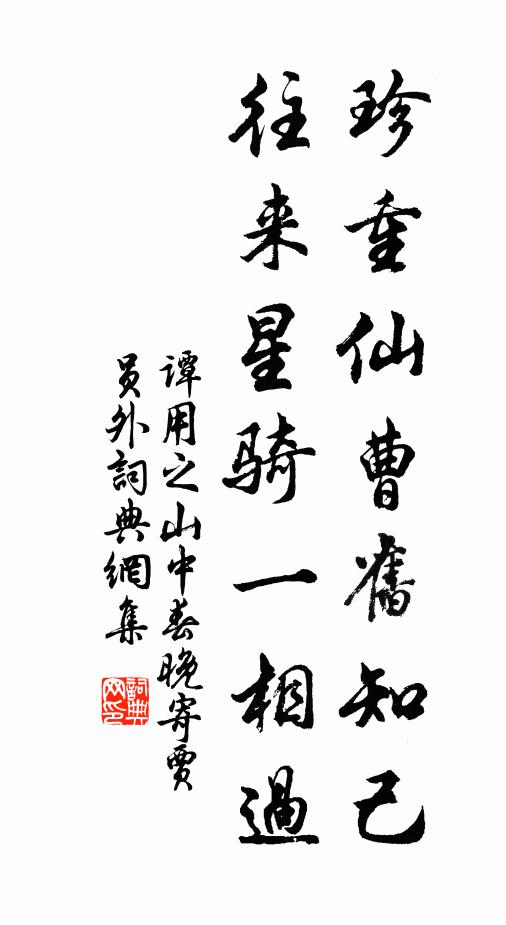 珍重仙曹舊知己
往来星骑一相過
谭用之山中春晚寄贾
员外詞典網集
詞典
网印